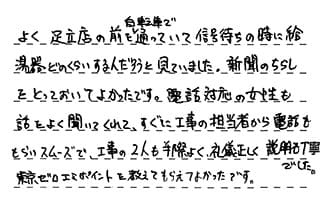 よく足立店の前を自転車で通っていて信号待ちの時に給
湯器どのくらいするんだろうと見ていました。新聞のちらし
をとっておいてよかったです。電話対応の女性も
話をよく聞いてくれて、すぐに工事の担当者から電話も
もらいスムーズで、工事の2人も手際よく、礼儀正しく説明も丁寧でした。
東京ゼロエミポイントを教えてもらえてよかったです。